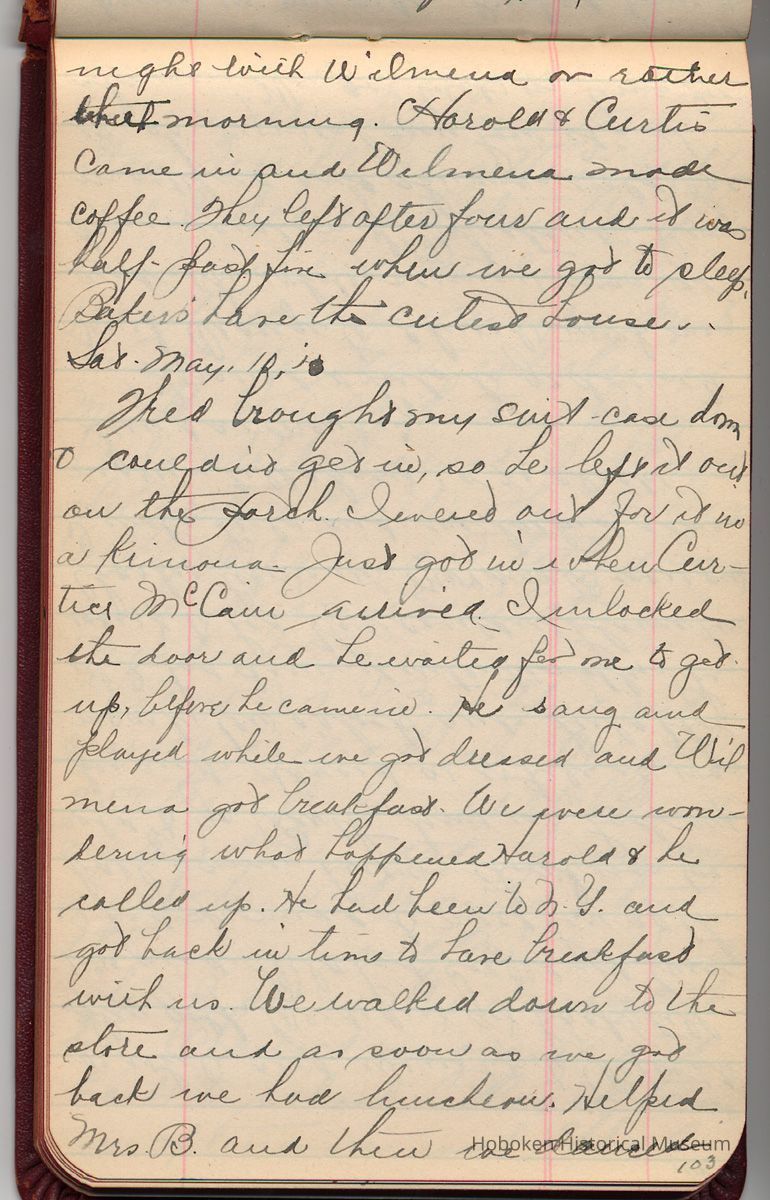 night with Wilmena or rather
that morning. Harold & Curtis
came in and Wilmena made
coffee. They left after four and it was
half-past five when we got to sleep.
Bakers have the cutest house.
Sat. May. 18,
Fred brought my suit-case down
& couldn't get in, so he left it out
on the porch. I went out for it in
a kimona. Just got in when Cur-
tice McCain arrived. I unlocked
the door and he waited for me to get
up, before he came in. He sang and
played while we got dressed and Wil
mena got breakfast. We were won-
dering what happened Harold & he
called up. He had been to N.Y. and
got back in time to have breakfast
with us. We walked down to the
store and as soon as we got
back we had luncheon. Helped
Mrs. B. and then we danced
Hoboken Historical Museum
103